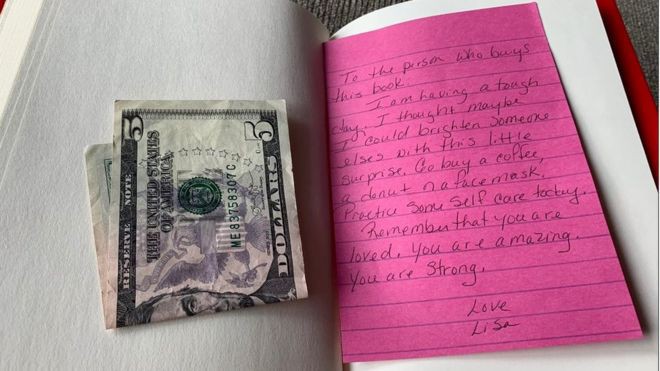 5
RESERVE NOTE
THE UNITED STATES
OF AMERICA
ME83758307C
DOLLARS
5
To the person who buys
this book:
I am having a tough
day. I thought maybe
I could brighten someone
elses with this little
surprise. Go buy a coffee,
a donut or a face mask.
Practice some self care today.
Remember that you are
loved. You are amazing.
You are strong.
Love
Lisa